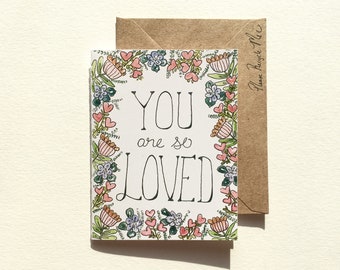 YOU
are so
LOVED